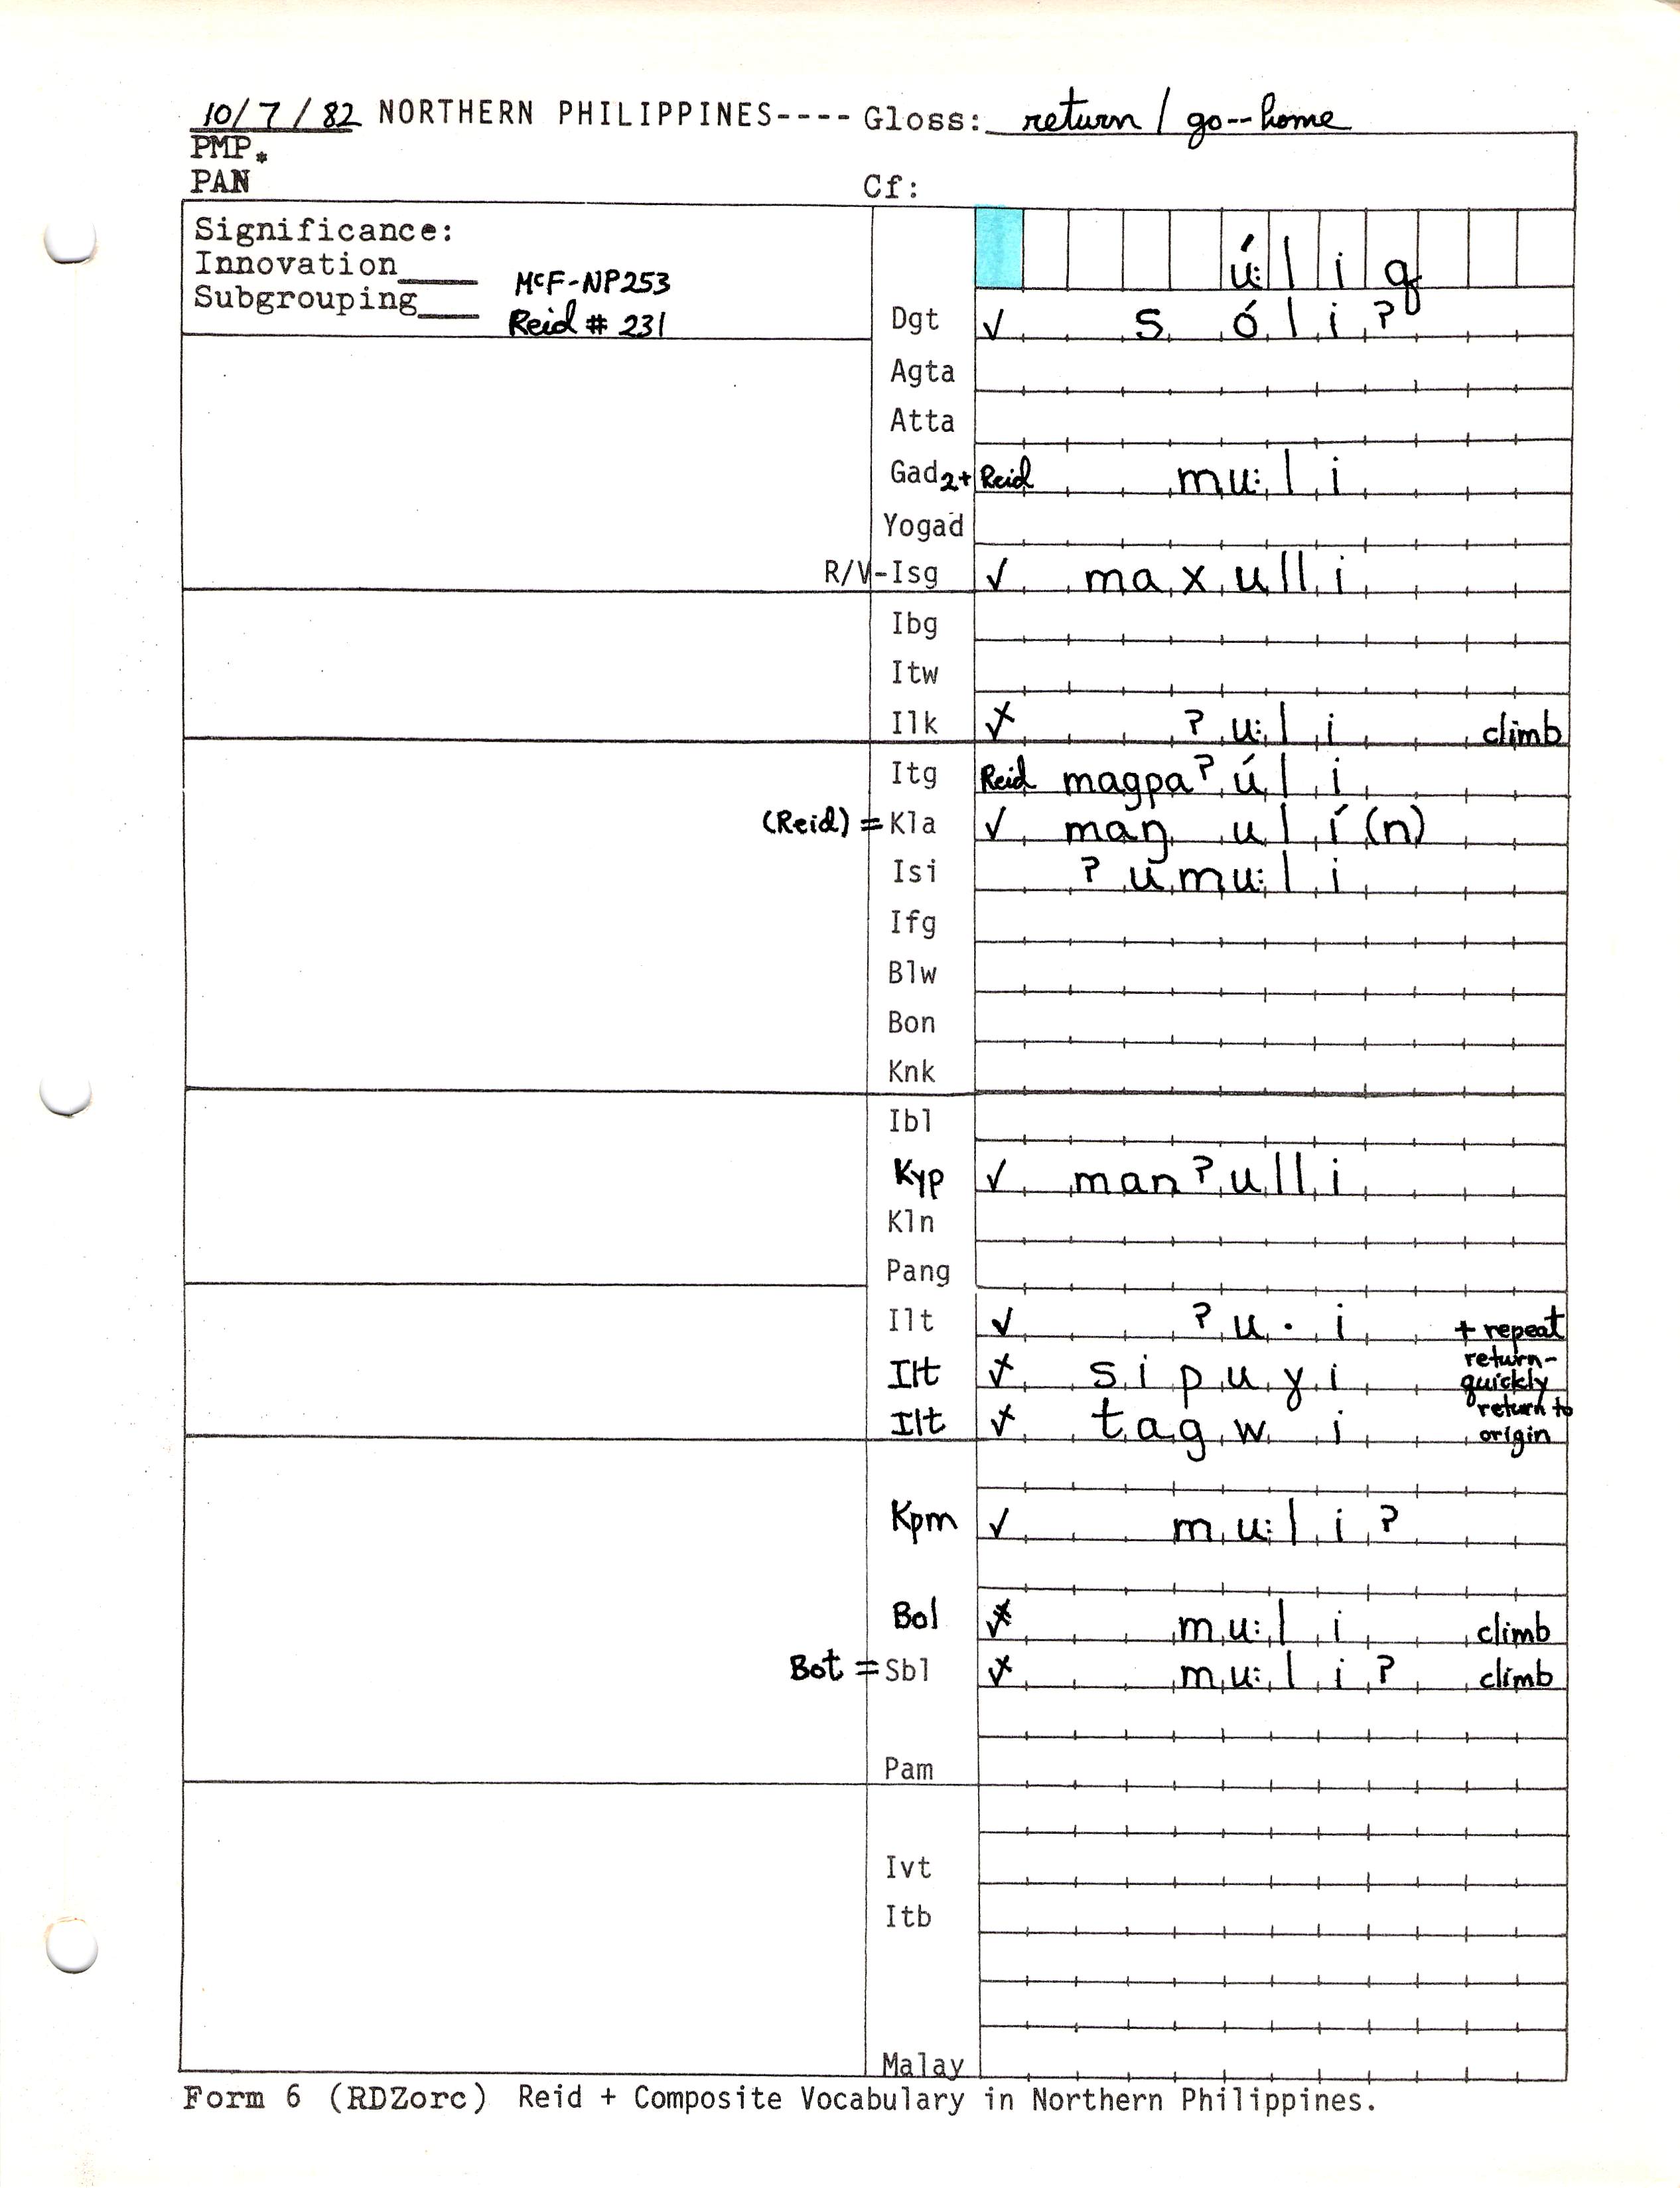 10/7/82 NORTHERN PHILIPPINES---- Gloss: return / go--home
PMP*
PAN Cf:
Significance:
Innovation____ McF-NP253
Subgrouping____ Reid # 231
ú: l i q
Dgt ✓ s ó l i ?
Agta
Atta
Gad 2+ Reid mu: l i
Yogad
R/V-Isg ✓ ma x u ll i
Ibg
Itw
Ilk ✓x ? u: l i climb
Itg Reid magpa ? ú l i
(Reid) = Kla ✓ maŋ u l í (n)
Isi ? u mu: l i
Ifg
Blw
Bon
Knk
Ibl
Kyp ✓ man ? u ll i
Kln
Pang
Ilt ✓ ? u · i + repeat
Ilt ✓x s i p u y i return-quickly
Ilt ✓x t a g w i return to origin
Kpm ✓ m u: l i ?
Bol ✓x m u: l i climb
Bot = Sbl ✓x m u: l i ? climb
Pam
Ivt
Itb
Malay
Form 6 (RDZorc) Reid + Composite Vocabulary in Northern Philippines.